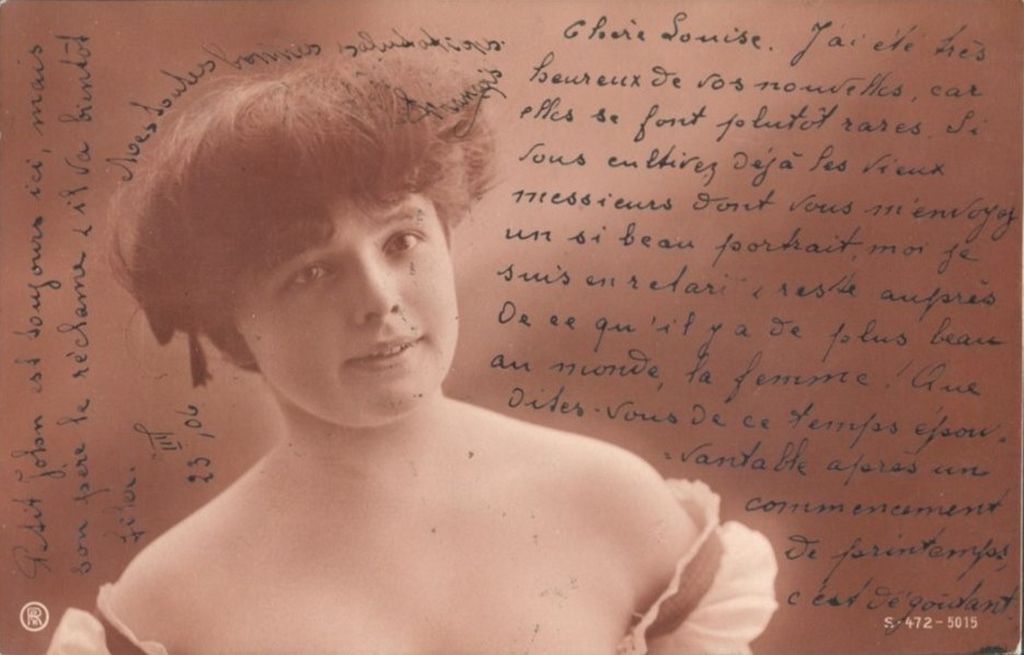 Chère Louise. J'ai été très
heureux de vos nouvelles, car
elles se font plutôt rares. Si
vous cultivez déjà les vieux
messieurs dont vous m'envoyez
un si beau portrait, moi je
suis en retard, reste auprès
de ce qu'il y a de plus beau
au monde, la femme! Que
dites-vous de ce temps épou-
-vantable après un
commencement
de printemps,
c'est dégoûtant.
Petit John est toujours ici, mais
son père le réclame & il va bientôt
filer.
23 III 06
Mes
RPH
S-472-5015